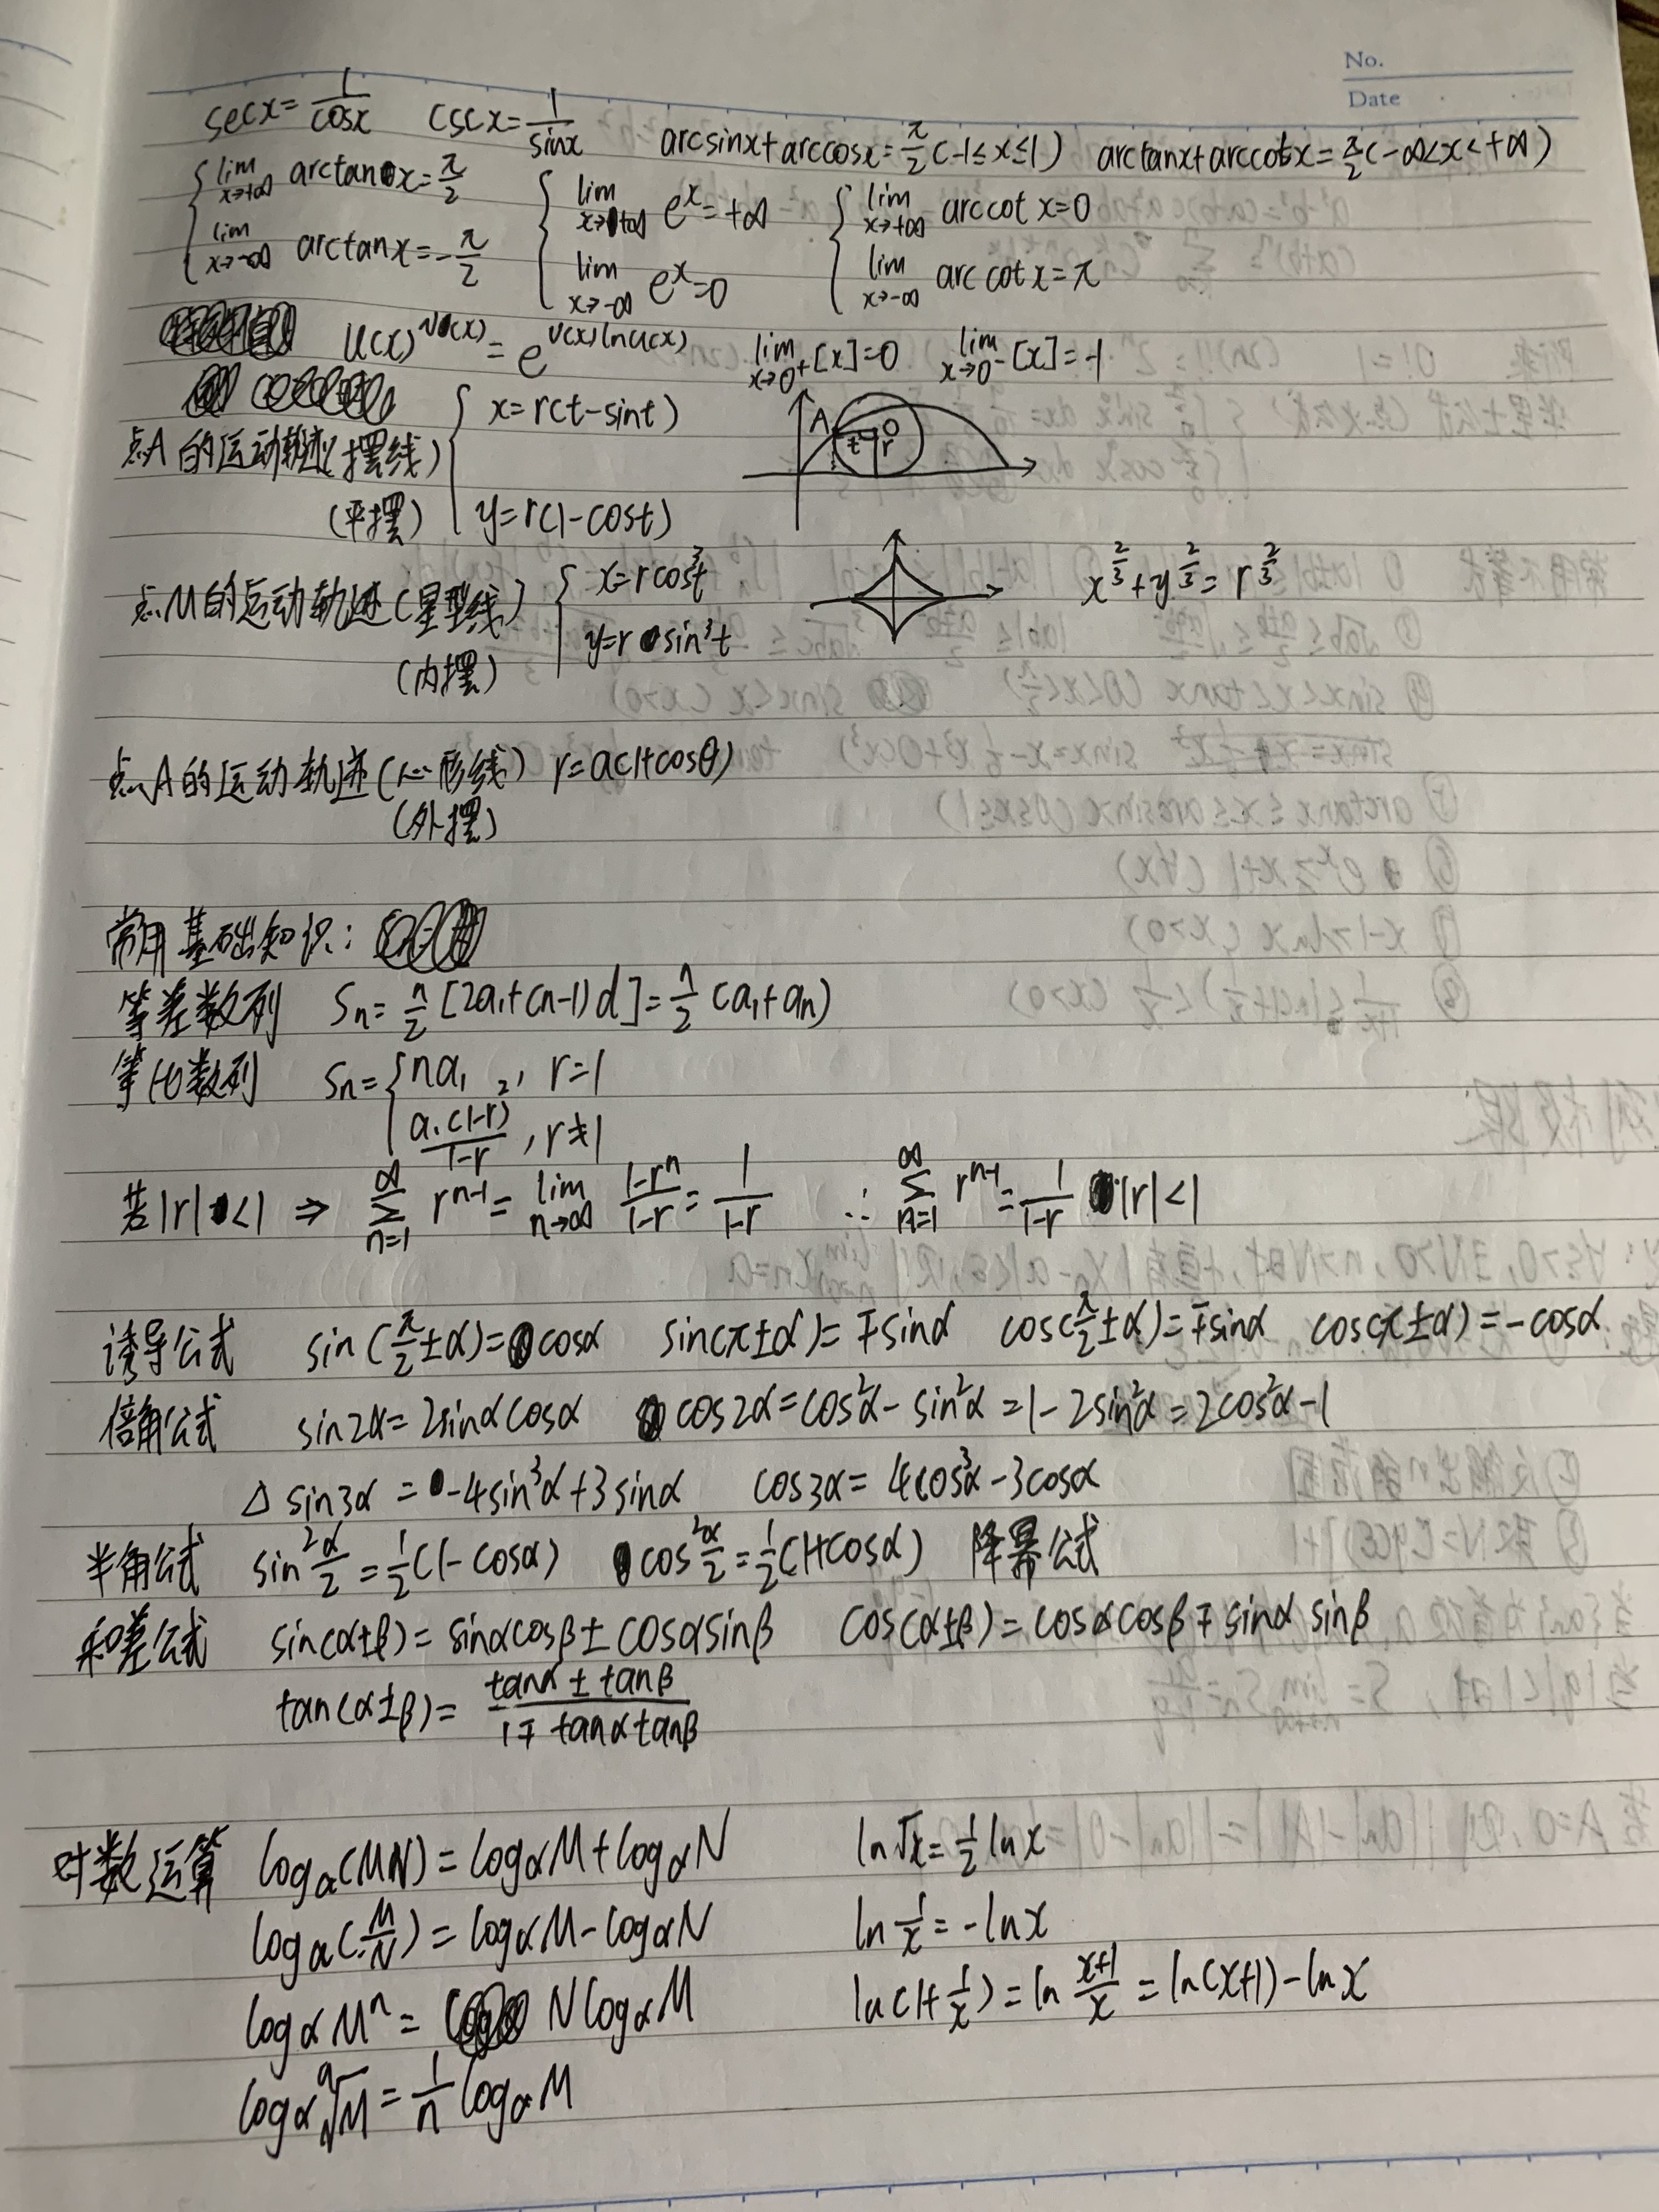 No.
Date
secx=1/cosx cscx=1/sinx arcsinx+arccosx=π/2(-1≤x≤1) arctanx+arccotx=π/2(-∞<x<+∞)
{lim x→+∞ arctanx=π/2 {lim x→+∞ e^x=+∞ {lim x→+∞ arccotx=0
lim x→-∞ arctanx=-π/2 lim x→-∞ e^x=0 lim x→-∞ arccotx=π
u(x)^v(x)=e^v(x)lnu(x) lim x→0⁺[x]=0 lim x→0⁻[x]=-1
点A的运动轨迹(摆线) {x=r(t-sint)
(平摆) y=r(1-cost)
A t O r
点M的运动轨迹(星型线) {x=rcos³t x^2/3+y^2/3=r^2/3
(内摆) y=rsin³t
点A的运动轨迹(心形线) r=a(1+cosθ)
(外摆)
常用基础知识:
等差数列 Sn=n/2[2a₁+(n-1)d]=n/2(a₁+an)
等比数列 Sn={na₁, r=1
a₁(1-r²)/1-r, r≠1
若|r|<1 ⇒ ∑(n=1,∞) r^n-1=lim n→∞ 1-r^n/1-r=1/1-r ∴ ∑(n=1,∞) r^n-1=1/1-r |r|<1
诱导公式 sin(π/2±α)=cosα sin(π±α)=∓sinα cos(π/2±α)=∓sinα cos(π±α)=-cosα
倍角公式 sin2α=2sinαcosα cos2α=cos²α-sin²α=1-2sin²α=2cos²α-1
△ sin3α=-4sin³α+3sinα cos3α=4cos³α-3cosα
半角公式 sin²α/2=1/2(1-cosα) cos²α/2=1/2(1+cosα) 降幂公式
和差公式 sin(α±β)=sinαcosβ±cosαsinβ cos(α±β)=cosαcosβ∓sinαsinβ
tan(α±β)=tanα±tanβ/1∓tanαtanβ
对数运算 logₐ(MN)=logαM+logαN ln√x=1/2lnx
logα(M/N)=logαM-logαN ln1/x=-lnx
logαMⁿ=NlogαM ln(1+1/x)=ln x+1/x=ln(x+1)-lnx
logα√M=1/n logαM